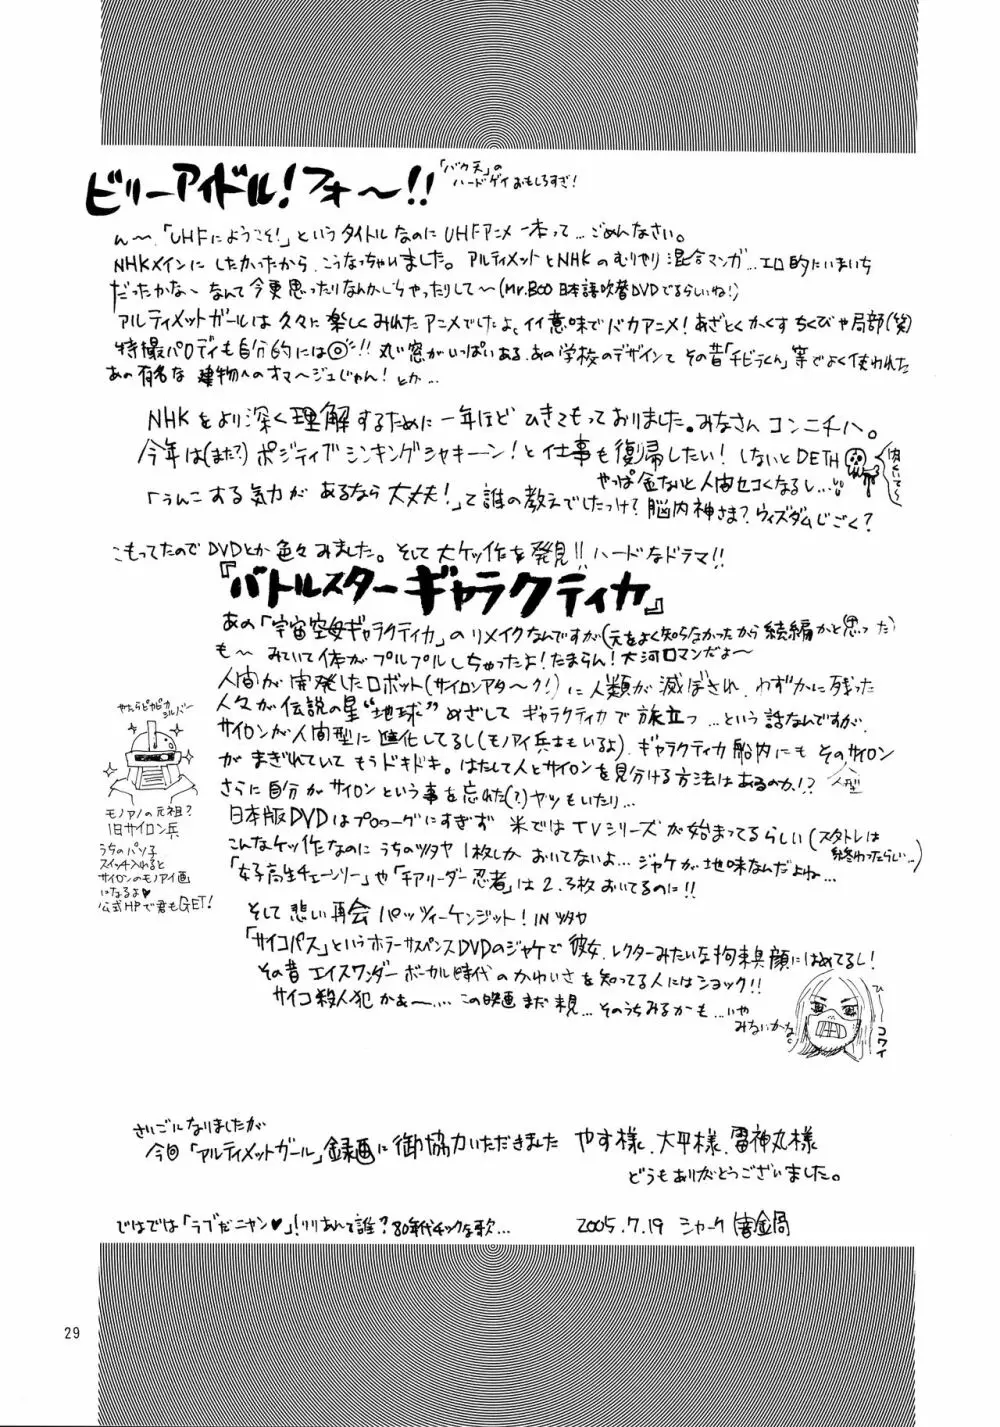 ビリーアイドル!フォ〜!!
「バク天」の
ハードゲイおもしろすぎ!
ん〜、「UHFにようこそ!」というタイトルなのにUHFアニメ一本って…ごめんなさい。
NHKメインにしたかったから、こうなっちゃいました。アルティメットとNHKのむりやり混合マンガ…エロ的にいまいち
だったかな〜なんて今更思ったりなんかしちゃったりして〜(Mr.BOO日本語吹替DVDでるらしいね!)
アルティメットガールは久々に楽しくみれたアニメでしたよ、イイ意味でバカアニメ!あざとくかくすちくびや局部(笑)
特撮パロディも自分的には◎!!丸い窓がいっぱいある、あの学校のデザインてその昔「チビラくん」等でよく使われた
あの有名な建物へのオマ〜ジュじゃん!とか…
NHKをより深く理解するために一年ほどひきこもっておりました。みなさんコンニチハ。
今年は(また?)ポジティブシンキングシャキーン!と仕事も復帰したい!しないとDETH
やっぱ金ないと人間セコくなるし…
「うんこする気力があるなら大丈夫!」て誰の教えでしたっけ?脳内神さま?ウィズダムじごく?
こもってたのでDVDとか色々みました。そして大ケッ作を発見!!ハードなドラマ!!
『バトルスターギャラクティカ』
あの「宇宙空母ギャラクティカ」のリメイクなんですが(元をよく知らなかったから続編かと思った)
も〜みていて体がプルプルしちゃったよ!たまらん!大河ロマンだよ〜
人間が開発したロボット(サイロンアタ〜ク!)に人類が滅ぼされ、わずかに残った
人々が伝説の星“地球”めざしてギャラクティカで旅立つ…という話なんですが、
サイロンが人間型に進化してるし(モノアイ兵士もいるよ)、ギャラクティカ船内にもそのサイロン
人型
がまぎれていてもうドキドキ。はたして人とサイロンを見分ける方法はあるのか!?
さらに自分がサイロンという事を忘れた(?)ヤツもいたり…
日本版DVDはプロローグにすぎず米ではTVシリーズが始まってるらしい(スタトレは
終わったらしい…)
こんなケッ作なのにうちのツタヤ1枚しかおいてないよ…ジャケが地味なんだよね…
「女子高生チェーンソー」や「チアリーダー忍者」は2、3枚おいてるのに!!
やたらピカピカ
シルバー
モノアイの元祖?
旧サイロン兵
うちのパソ子
スイッチ入れると
サイロンのモノアイ画
になるよ♥
公式HPで君もGET!
そして悲しい再会パッツィーケンジット!INツタヤ
「サイコパス」というホラーサスペンスDVDのジャケで彼女、レクターみたいな拘束具顔にはめてるし!
その昔エイスワンダーボーカル時代のかわいさを知ってる人にはショック!!
サイコ殺人犯かぁ〜…この映画まだ未見…そのうちみるかも…いや
みないかな。
ひー
コワイ
さいごになりましたが
今回「アルティメットガール」録画に御協力いただきましたやす様、大平様、雷神丸様
どうもありがとうございました。
ではでは「ラブだニャン♥」!リリあんて誰?80年代チックな歌…
2005.7.19 シャーク
29